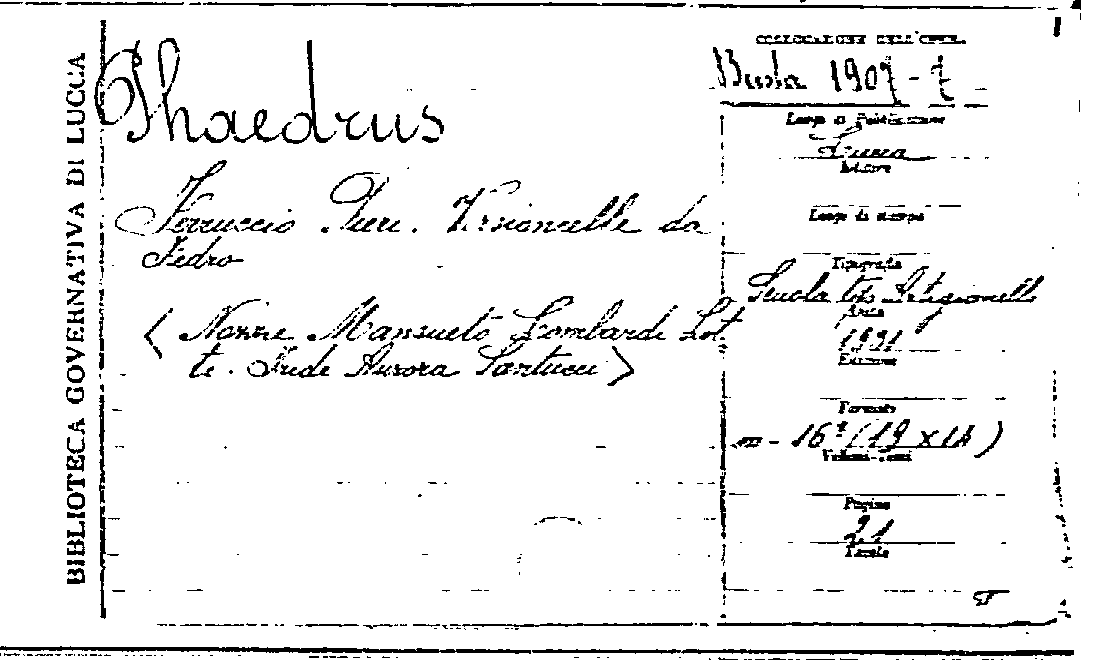 BIBLIOTECA GOVERNATIVA DI LUCCA
Phaedrus
Ferruccio Pieri. Versioncelle da
Fedro
(Nozze Mansueto Lombardi Lot
ti. Iride Aurora Santucci)
COLLOCAZIONE DELL'OPERA
Busta 1907-7
Luogo di Pubblicazione
Lucca
Editore
Luogo di stampa
Tipografia
Scuola tip. Artigianelli
Anno
1931
Edizione
Formato
in-16° (19 x 14)
Volumi-Tomi
Pagine
21
Tavole